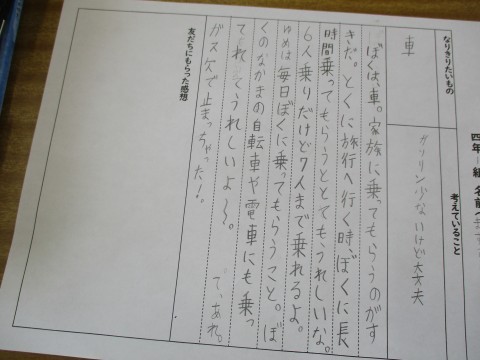 四年一組 名前
なりきりたいもの
車
考えていること
ガソリン少ないけど大丈夫
ぼくは、車。家族に乗ってもらうのがす
きだ。とくに旅行へ行く時、ぼくに長
時間乗ってもらうととてもうれしいな。
6人乗りだけど7人まで乗れるよ。
ゆめは毎日ぼくに乗ってもらうこと。ぼ
くのなかまの自転車や電車にも乗っ
てくれてうれしいよ〜。 て、あれ。
ガス欠で止まっちゃった!。
友だちにもらった感想